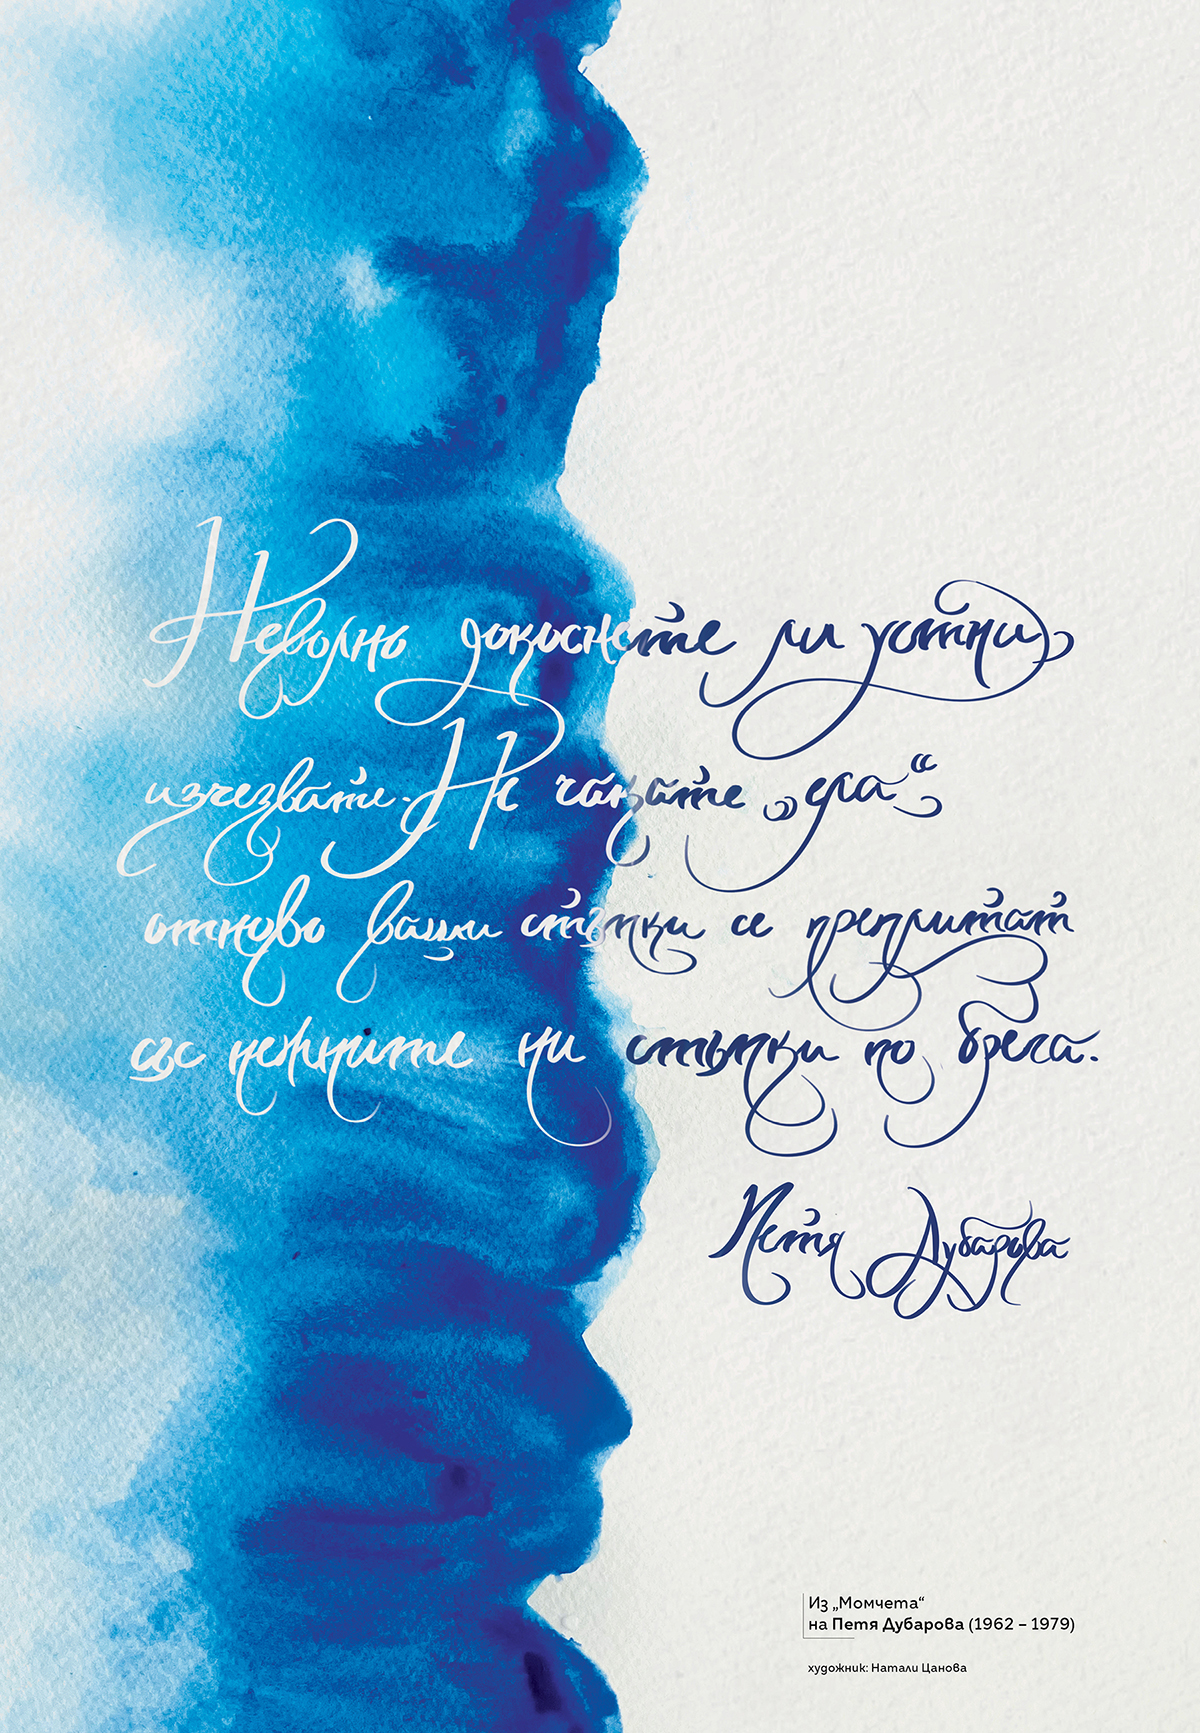 Неволно докоснете ли устни,
изчезвате. Не чакате „ела“
отново ваши стъпки се преплитат
със нежните ни стъпки по брега.
Петя Дубарова
Из „Момчета“
на Петя Дубарова (1962 – 1979)
художник: Натали Цанова